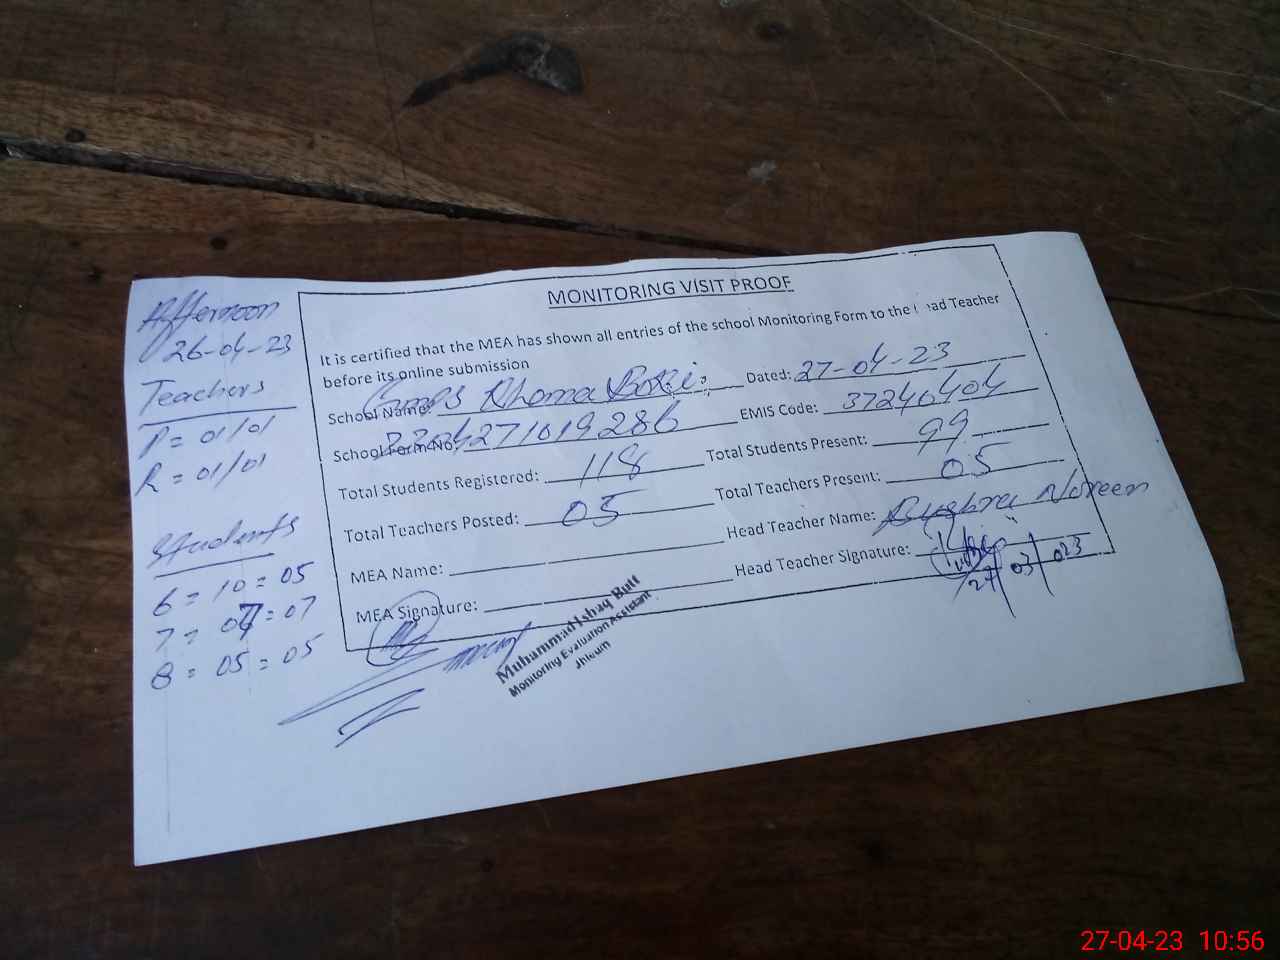 Afternoon
26-04-23
Teachers
P = 01/01
R = 01/01
Students
6 = 10 = 05
7 = 07 = 07
8 = 05 = 05
MONITORING VISIT PROOF
It is certified that the MEA has shown all entries of the school Monitoring Form to the Head Teacher
before its online submission
School Name: Dated: 27-04-23
School Form No: EMIS Code: 37240404
Total Students Registered: 118 Total Students Present: 99
Total Teachers Posted: 05 Total Teachers Present: 05
MEA Name: Head Teacher Name: Bushra Noreen
MEA Signature: Head Teacher Signature:
27/03/023
Muhammad Ishaq Butt
Monitoring Evaluation Assistant
Jhleum
27-04-23 10:56